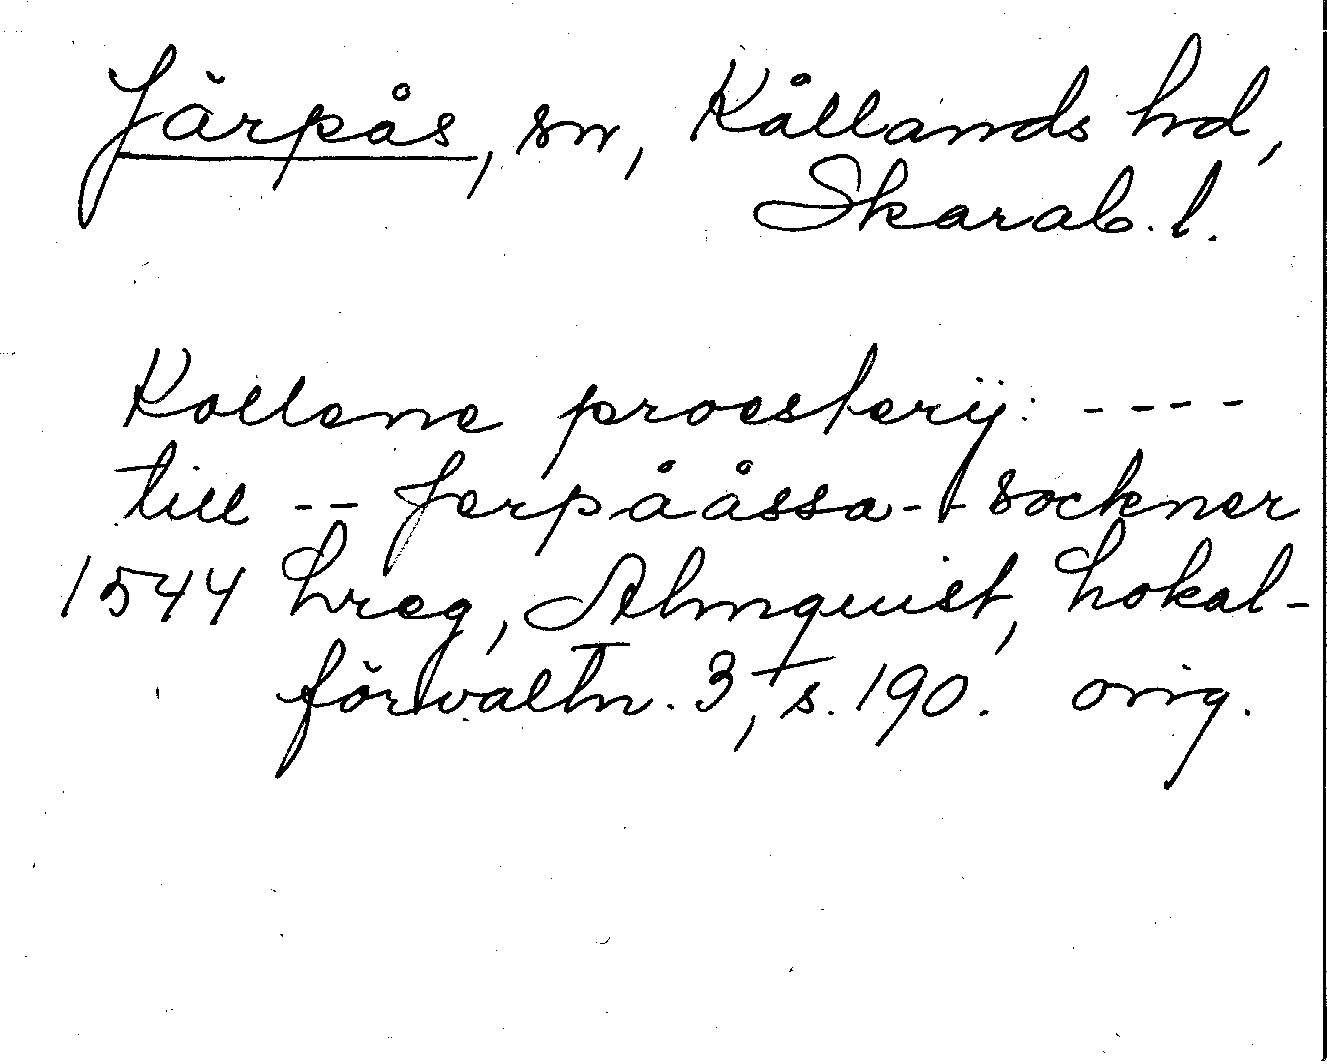 Järpås, sn, Kållands hd,
Skarab. l.
Kollene proesterij: ----
till -- Jerpååssa -- sockner
1544 hreg, Almquist, Lokal-
förvaltn. 3, s. 190. orig.